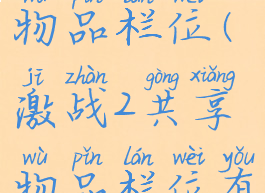 wù pǐn lán wèi
物品栏位(
jī zhàn gòng xiǎng
激战2共享
wù pǐn lán wèi yǒu
物品栏位有